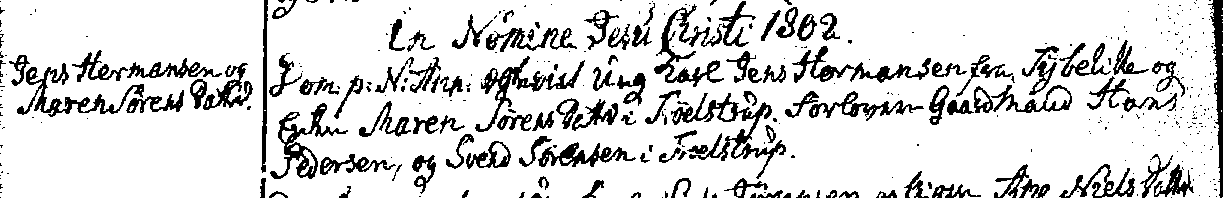 In Nomine Jesu Christi 1802.
Jens Hermansen og
Maren Sørens Datter.
Dom. p: N: Ann: Ung Karl Jens Hermansen fra Tÿbelille og
Maren Sørens Datter i Troelstrup. Forlovere Gaardmand Hans
Pedersen, og Svend Sørensen i Troelstrup.
Niels Datter